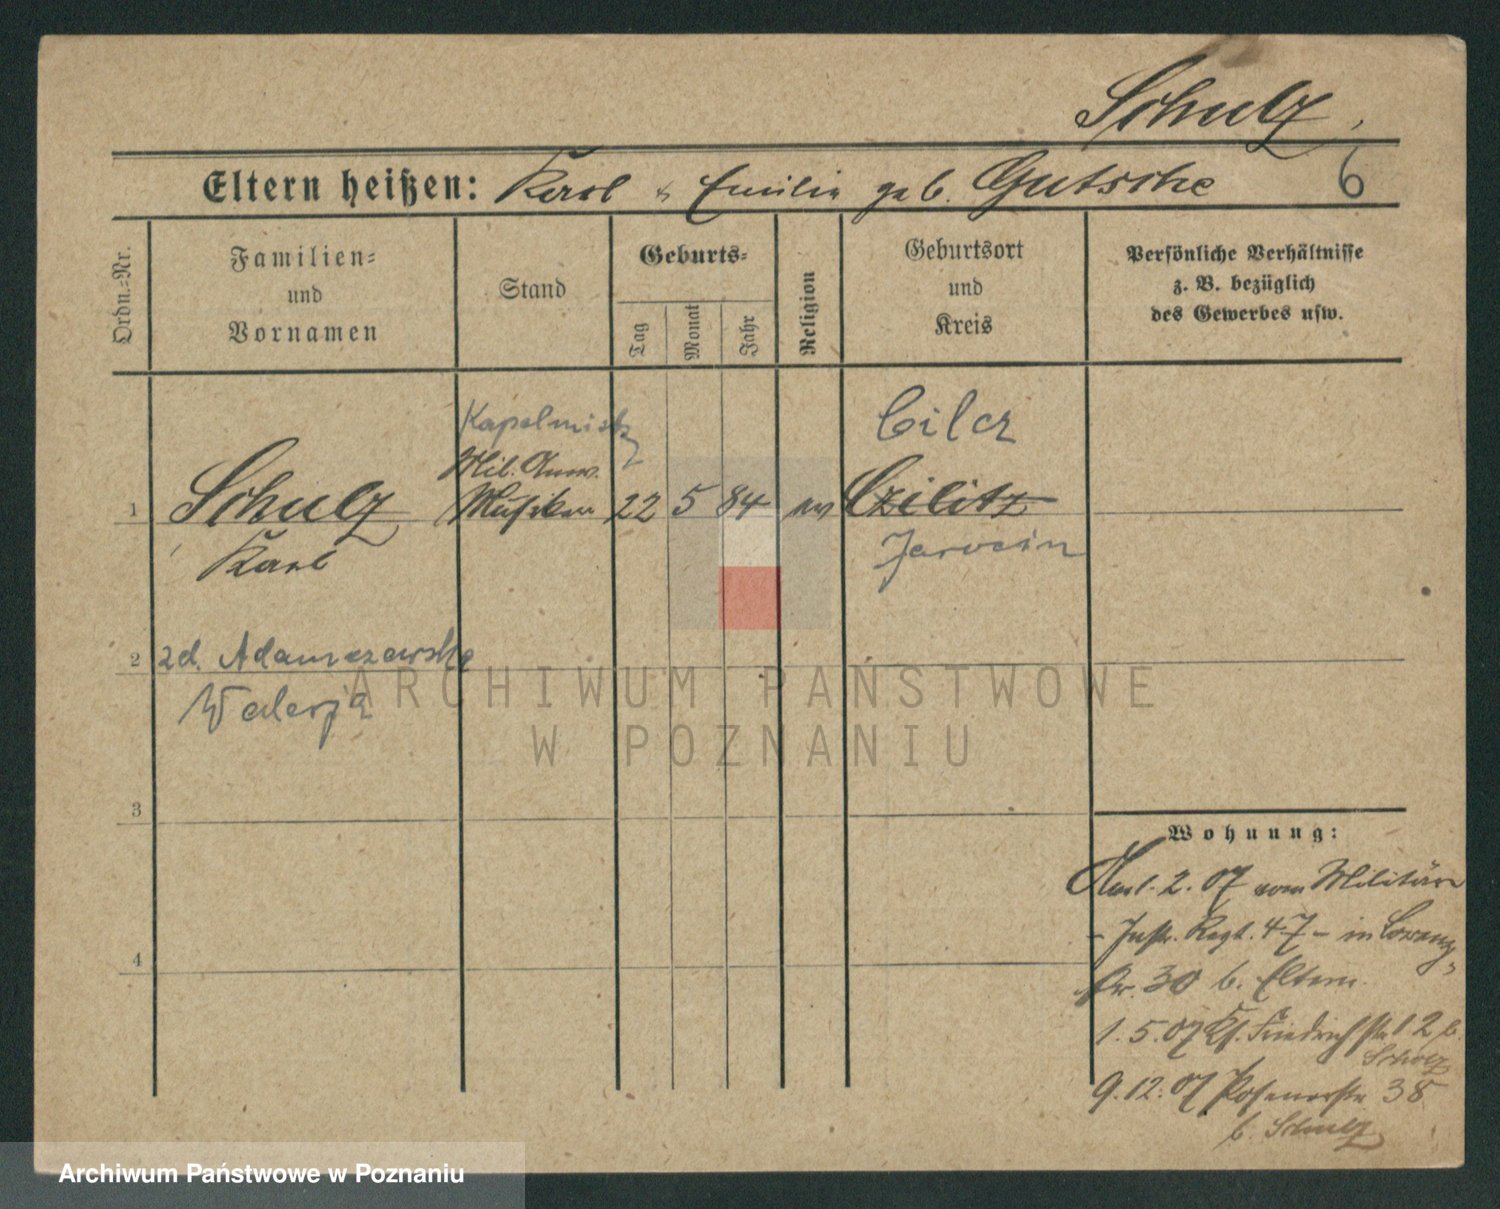 Schulz
Eltern heißen: Karl & Emilie geb. Gutsche
6
Ordn.-Nr.
Familien-
und
Vornamen
Stand
Geburts-
Tag
Monat
Jahr
Religion
Geburtsort
und
Kreis
Persönliche Verhältnisse
z. B. bezüglich
des Gewerbes usw.
1
Schulz
Karl
Kapelmistrz
Mil. Anw.
Musiker
22
5
84
ev
Cilcz
Czilitz
Jarocin
2
zd. Adamczewska
Walerja
3
4
Wohnung:
2. 07 vom Militär
- Inftr. Regt. 47 - in
30 b. Eltern.
1. 5. 07 Kf. Friedrichstr 12 b.
Scholz
9. 12. 07 Posenerstr 38
b. Schulz
ARCHIWUM PAŃSTWOWE
W POZNANIU
Archiwum Państwowe w Poznaniu